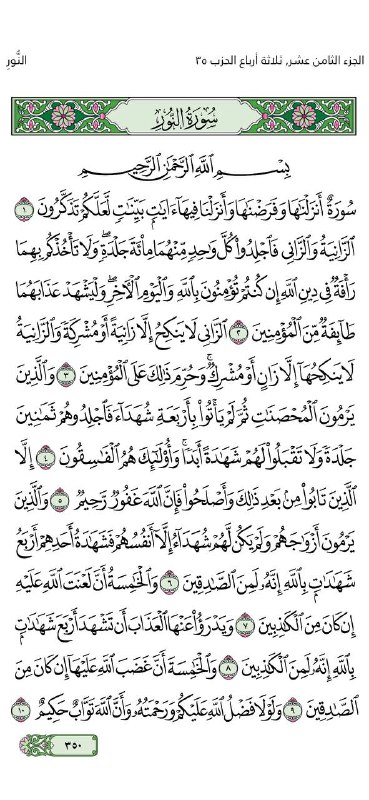 الجزء الثامن عشر, ثلاثة أرباع الحزب ٣٥
النُّور
سُورَةُ النُّورِ
بِسْمِ اللَّهِ الرَّحْمَٰنِ الرَّحِيمِ
سُورَةٌ أَنزَلْنَٰهَا وَفَرَضْنَٰهَا وَأَنزَلْنَا فِيهَآ ءَايَٰتٍۭ بَيِّنَٰتٍ لَّعَلَّكُمْ تَذَكَّرُونَ ١
ٱلزَّانِيَةُ وَٱلزَّانِى فَٱجْلِدُوا۟ كُلَّ وَٰحِدٍ مِّنْهُمَا مِا۟ئَةَ جَلْدَةٍ ۖ وَلَا تَأْخُذْكُم بِهِمَا
رَأْفَةٌ فِى دِينِ ٱللَّهِ إِن كُنتُمْ تُؤْمِنُونَ بِٱللَّهِ وَٱلْيَوْمِ ٱلْءَاخِرِ ۖ وَلْيَشْهَدْ عَذَابَهُمَا
طَآئِفَةٌ مِّنَ ٱلْمُؤْمِنِينَ ٢ ٱلزَّانِى لَا يَنكِحُ إِلَّا زَانِيَةً أَوْ مُشْرِكَةً وَٱلزَّانِيَةُ
لَا يَنكِحُهَآ إِلَّا زَانٍ أَوْ مُشْرِكٌ ۚ وَحُرِّمَ ذَٰلِكَ عَلَى ٱلْمُؤْمِنِينَ ٣ وَٱلَّذِينَ
يَرْمُونَ ٱلْمُحْصَنَٰتِ ثُمَّ لَمْ يَأْتُوا۟ بِأَرْبَعَةِ شُهَدَآءَ فَٱجْلِدُوهُمْ ثَمَٰنِينَ
جَلْدَةً وَلَا تَقْبَلُوا۟ لَهُمْ شَهَٰدَةً أَبَدًا ۚ وَأُو۟لَٰٓئِكَ هُمُ ٱلْفَٰسِقُونَ ٤ إِلَّا
ٱلَّذِينَ تَابُوا۟ مِنۢ بَعْدِ ذَٰلِكَ وَأَصْلَحُوا۟ فَإِنَّ ٱللَّهَ غَفُورٌ رَّحِيمٌ ٥ وَٱلَّذِينَ
يَرْمُونَ أَزْوَٰجَهُمْ وَلَمْ يَكُن لَّهُمْ شُهَدَآءُ إِلَّآ أَنفُسُهُمْ فَشَهَٰدَةُ أَحَدِهِمْ أَرْبَعُ
شَهَٰدَٰتٍۭ بِٱللَّهِ ۙ إِنَّهُۥ لَمِنَ ٱلصَّٰدِقِينَ ٦ وَٱلْخَٰمِسَةُ أَنَّ لَعْنَتَ ٱللَّهِ عَلَيْهِ
إِن كَانَ مِنَ ٱلْكَٰذِبِينَ ٧ وَيَدْرَؤُا۟ عَنْهَا ٱلْعَذَابَ أَن تَشْهَدَ أَرْبَعَ شَهَٰدَٰتٍۭ
بِٱللَّهِ ۙ إِنَّهُۥ لَمِنَ ٱلْكَٰذِبِينَ ٨ وَٱلْخَٰمِسَةَ أَنَّ غَضَبَ ٱللَّهِ عَلَيْهَآ إِن كَانَ مِنَ
ٱلصَّٰدِقِينَ ٩ وَلَوْلَا فَضْلُ ٱللَّهِ عَلَيْكُمْ وَرَحْمَتُهُۥ وَأَنَّ ٱللَّهَ تَوَّابٌ حَكِيمٌ ١٠
٣٥٠